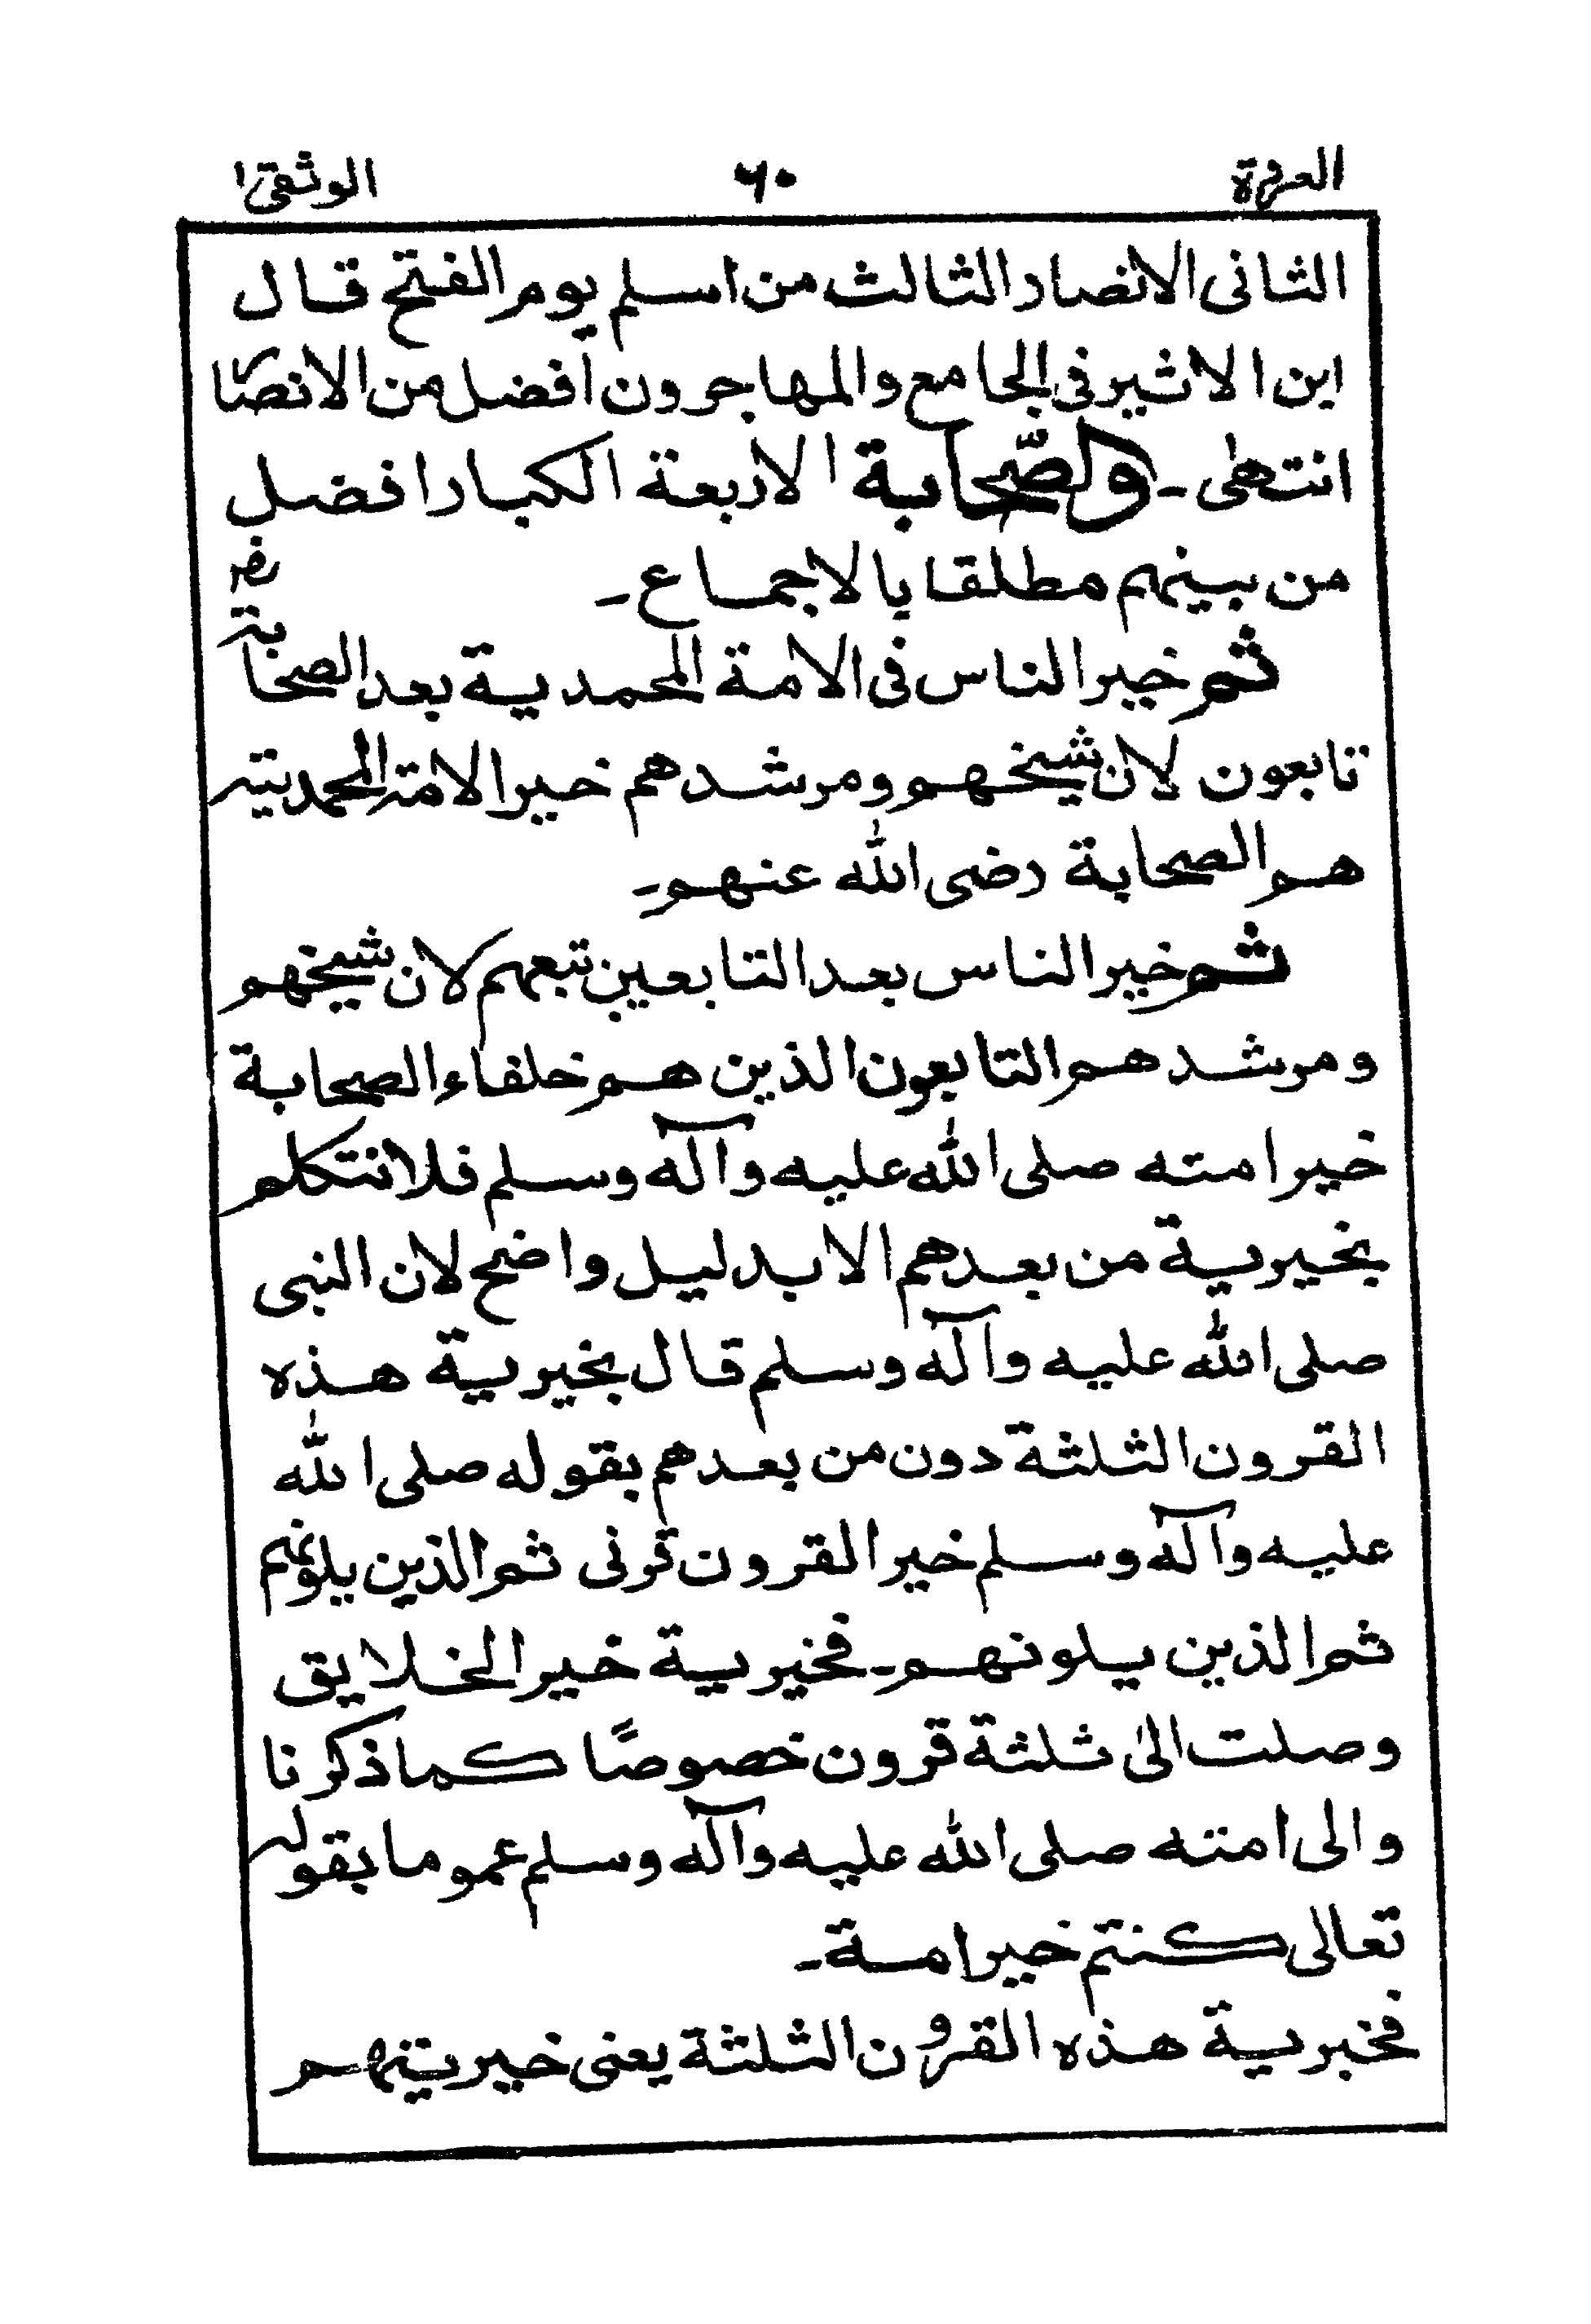 العروة ٦٠ الوثقى
الثانى الانصار الثالث من اسلم يوم الفتح قال
ابن الاثير فى الجامع والمهاجرون افضل من الانصار
انتهى ـ والصّحابة الاربعة الكبار افضل
من بينهم مطلقا بالاجماع ـ
ثم خير الناس فى الامة المحمدية بعد الصحابة رضـ
تابعون لان شيخهم ومرشدهم خير الامة المحمدية
هم الصحابة رضى الله عنهم ـ
ثم خير الناس بعد التابعين تبعهم لان شيخهم
ومرشدهم التابعون الذين هم خلفاء الصحابة
خير امته صلى الله عليه وآله وسلم فلا نتكلم
بخيرية من بعدهم الا بدليل واضح لان النبى
صلى الله عليه وآله وسلم قال بخيرية هذه
القرون الثلثة دون من بعدهم بقوله صلى الله
عليه وآله وسلم خير القرون قرنى ثم الذين يلونهم
ثم الذين يلونهم ـ فخيرية خير الخلايق
وصلت الىٰ ثلثة قرون خصوصًا كما ذكرنا
والى امته صلى الله عليه وآله وسلم عموما بقوله
تعالى كنتم خير امة ـ
فخيرية هذه القرون الثلثة يعنى خيريتهم